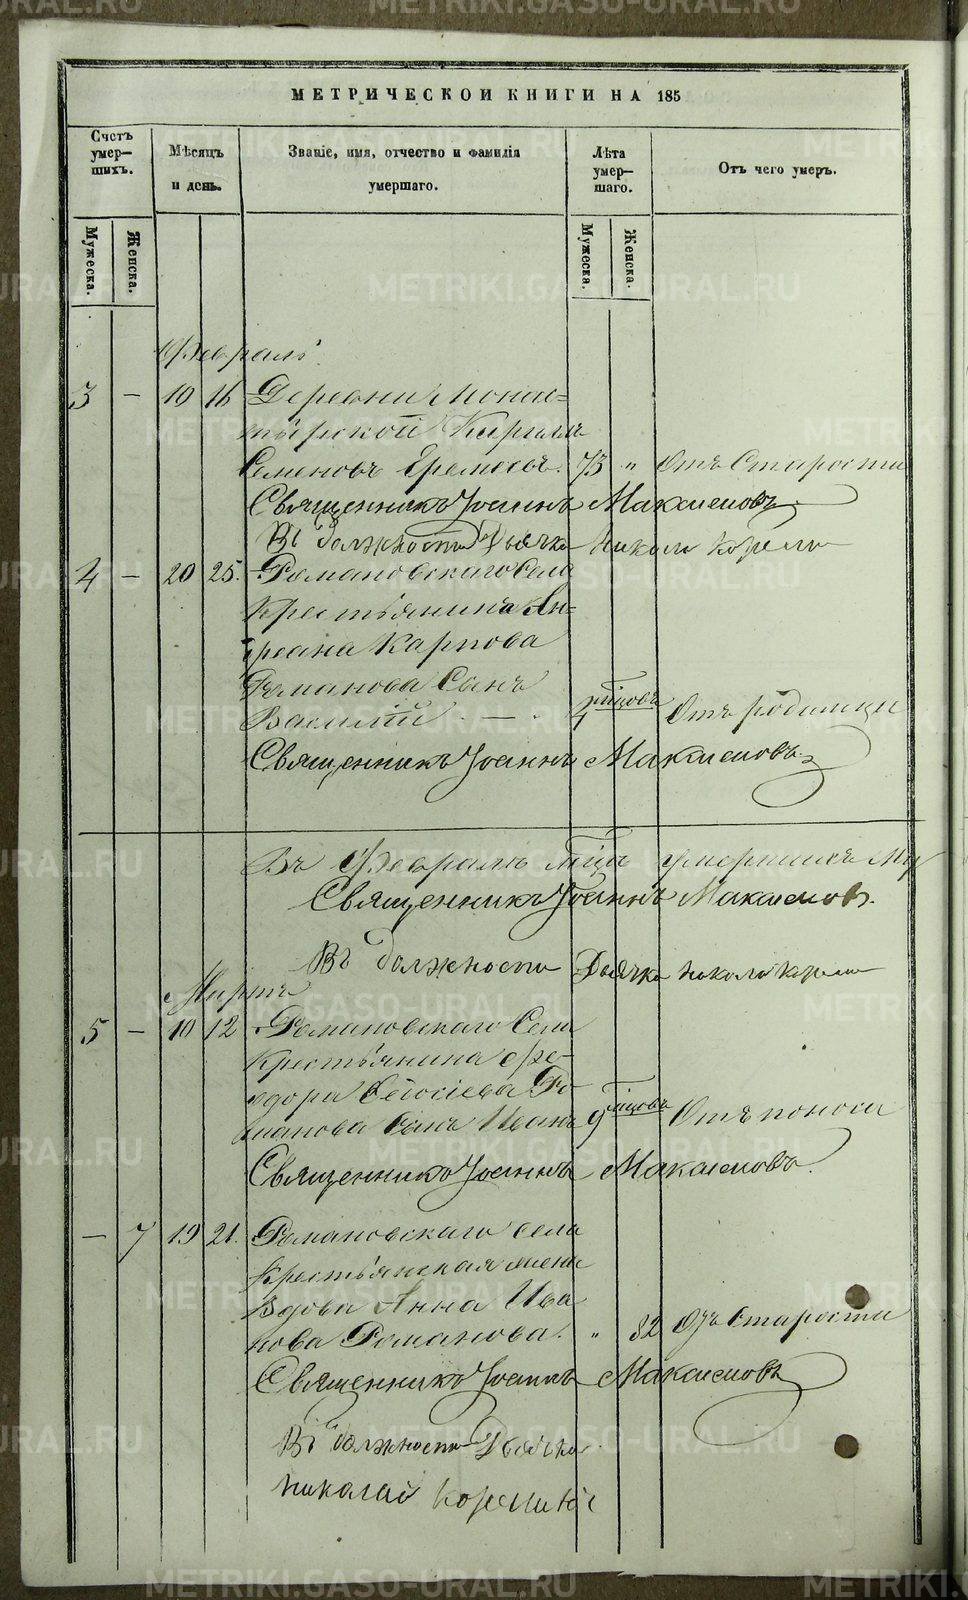 МЕТРИЧЕСКОЙ КНИГИ НА 185
Счетъ умер—шихъ.
Мѣсяцъ и день.
Званіе, имя, отчество и фамилія умершаго.
Лѣта умер—шаго.
Отъ чего умеръ.
Мужеска.
Женска.
Мужеска.
Женска.
Февраль
3 — 10 16 Деревни Монас=
тырской Кириллъ
Семеновъ 73 „ Отъ Старости
Священникъ Іоаннъ Максимовъ
Въ должности Дьячка Николай
4 — 20 25. Романовскаго Села
Крестьянина Ан-
Карпова
Романова Сынъ
Василій — 4 мѣсяцовъ Отъ родимца
Священникъ Іоаннъ Максимовъ
Въ Февралѣ м͠цѣ умершихъ
Священникъ Іоаннъ Максимовъ.
Въ должности Дьячка Николай
Мартъ
5 — 10 12 Романовскаго Села
Крестьянина Фе-
дора Ро-
манова сынъ Иванъ 9 мѣсяцовъ Отъ поноса
Священникъ Іоаннъ Максимовъ.
— 7 19 21. Романовскаго села
Крестьянская жена
Вдова Анна Ива
нова Романова. „ 82 Отъ Старости
Священникъ Іоаннъ Максимовъ
Въ должности Дьячка
Николай
METRIKI.GASO-URAL.RU